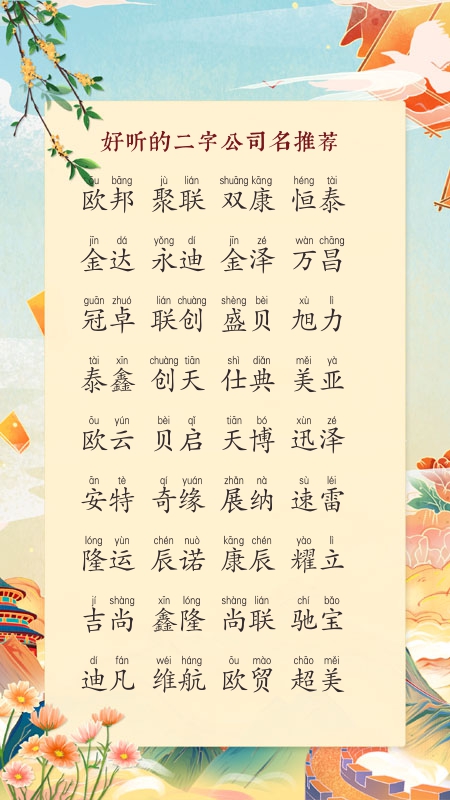 好听的二字公司名推荐
ōu bāng jù lián shuāng kāng héng tài
欧邦 聚联 双康 恒泰
jīn dá yǒng dí jīn zé wàn chāng
金达 永迪 金泽 万昌
guān zhuó lián chuàng shèng bèi xù lì
冠卓 联创 盛贝 旭力
tài xīn chuàng tiān shì diǎn měi yà
泰鑫 创天 仕典 美亚
ōu yún bèi qǐ tiān bó xùn zé
欧云 贝启 天博 迅泽
ān tè qí yuán zhǎn nà sù léi
安特 奇缘 展纳 速雷
lóng yùn chén nuò kāng chén yào lì
隆运 辰诺 康辰 耀立
jí shàng xīn lóng shàng lián chí bǎo
吉尚 鑫隆 尚联 驰宝
dí fán wéi háng ōu mào chāo měi
迪凡 维航 欧贸 超美